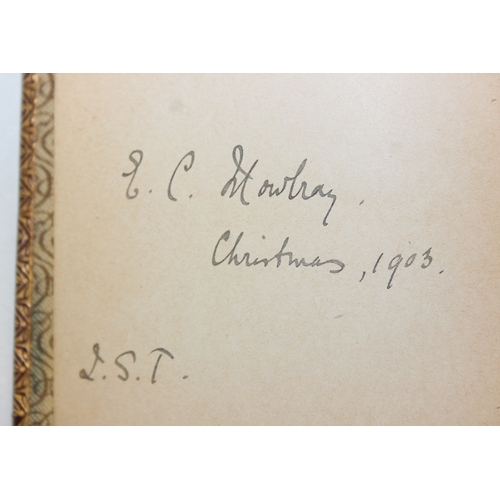 E. C. Mowbray.
Christmas, 1903.
I.S.T.